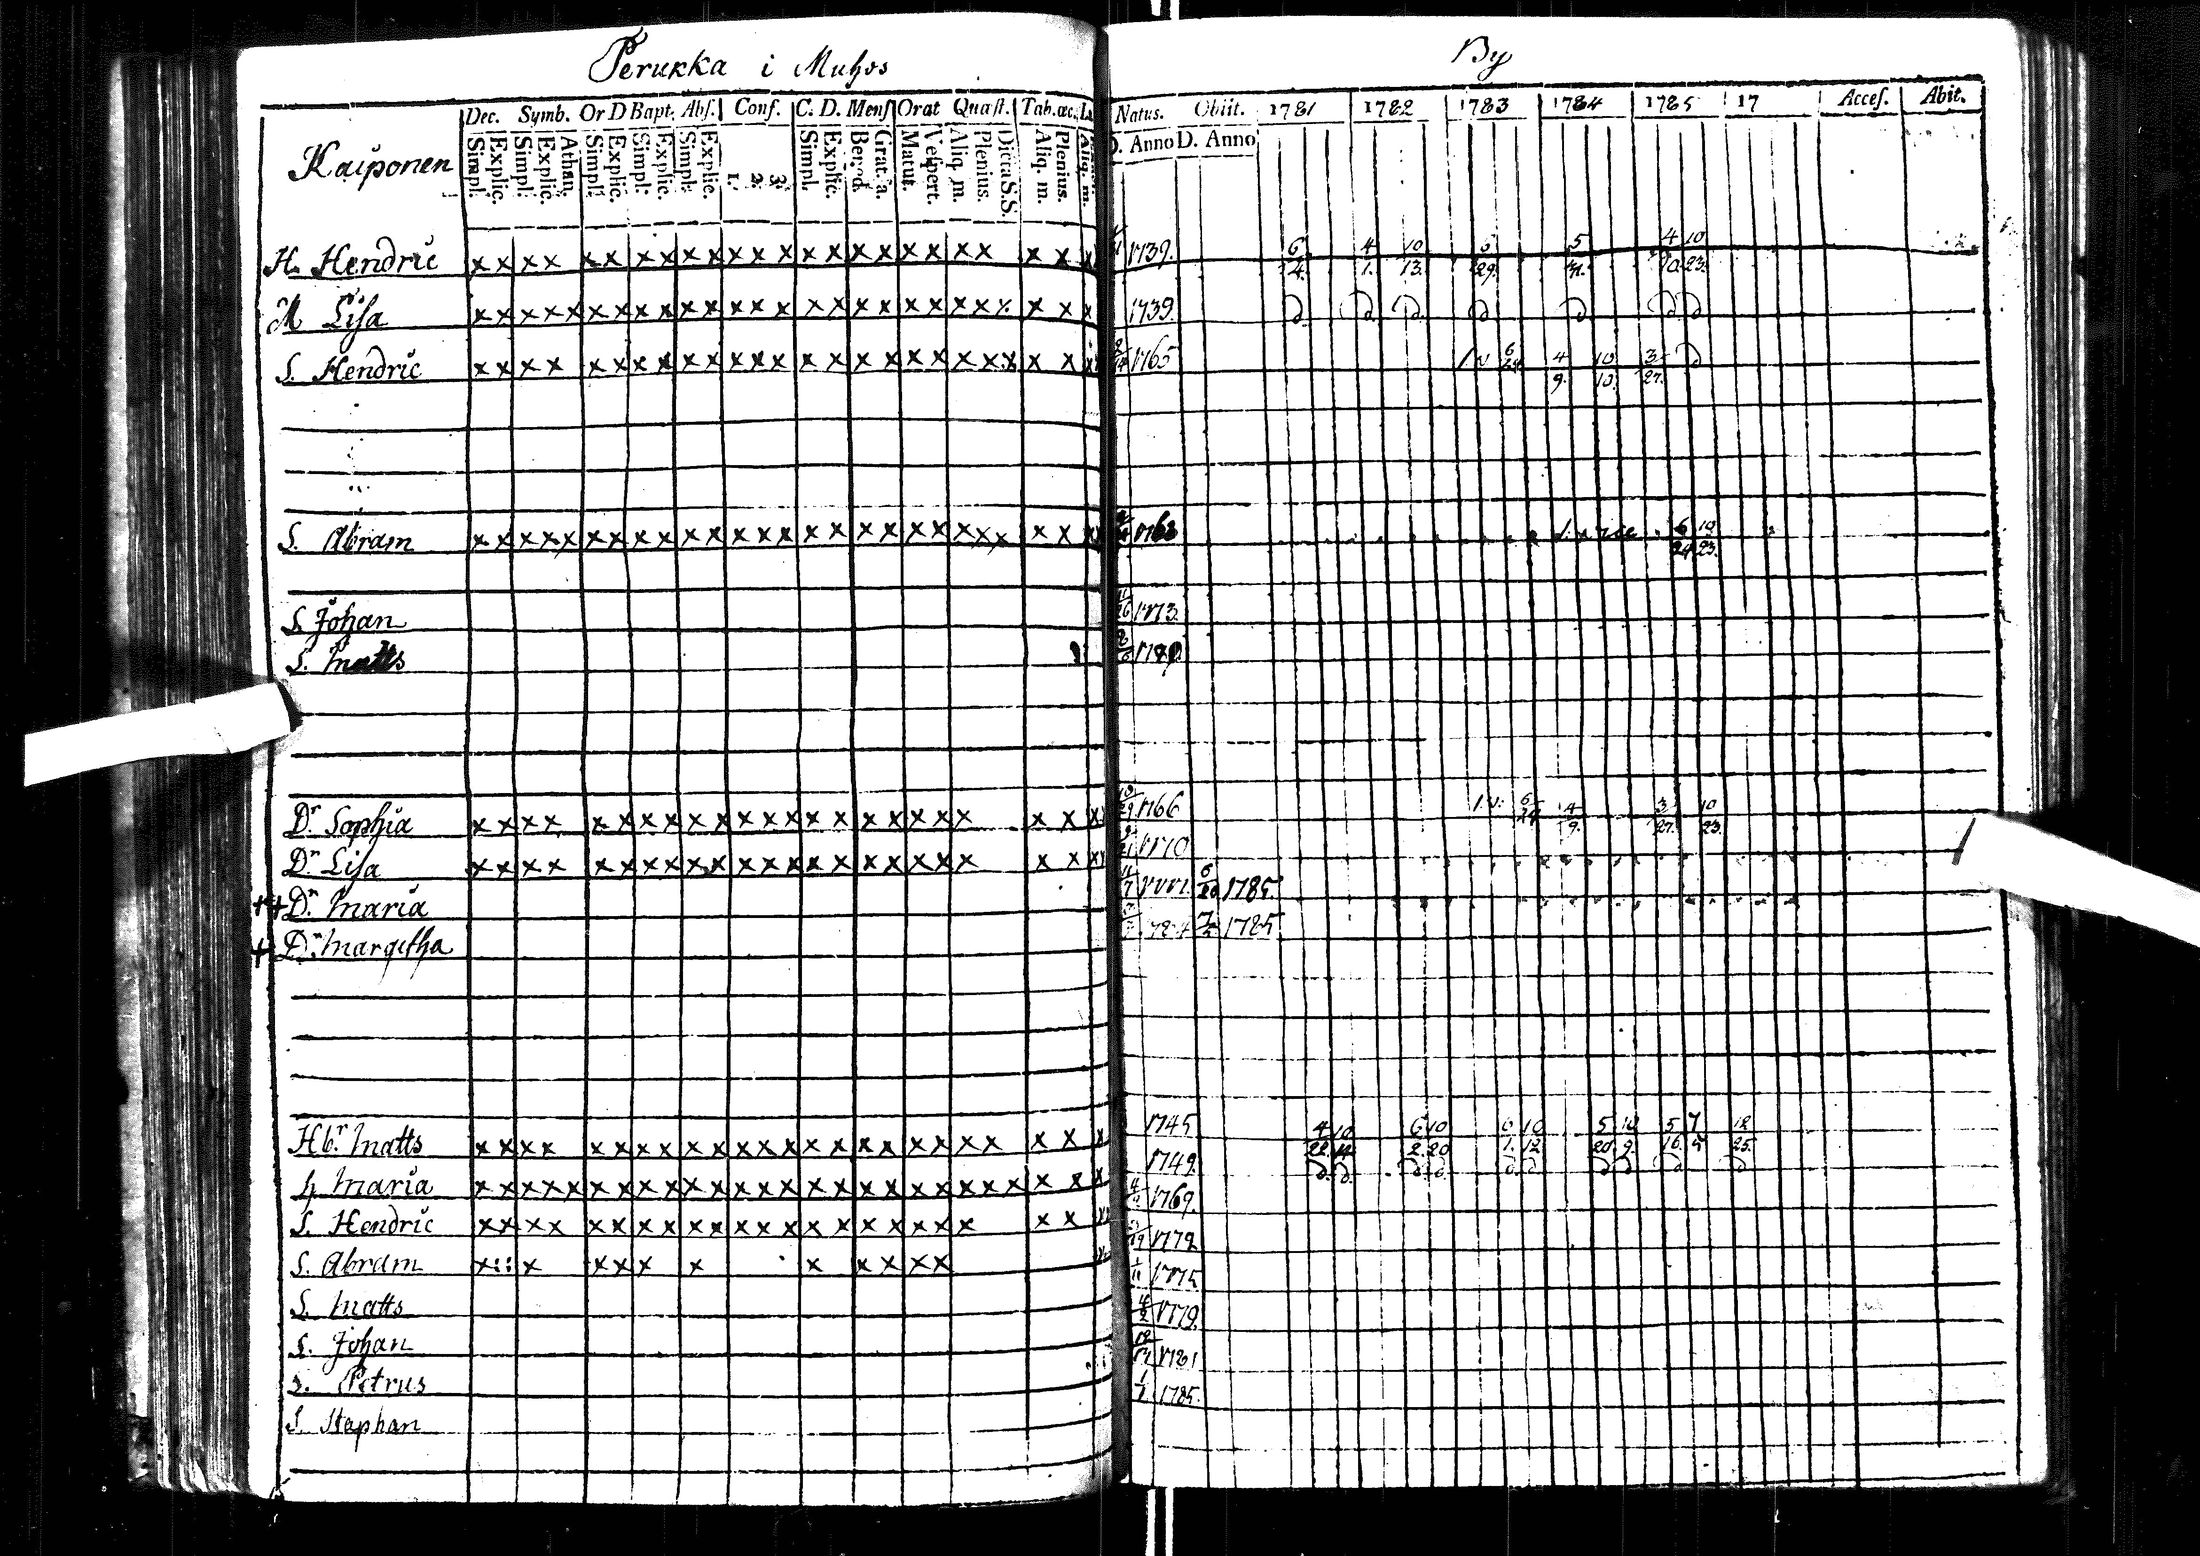 Perukka i Muhos By
Dec. Symb. Or D Bapt. Abs. Conf. C. D. Mens Orat Quæst. Tab. œc. Natus. Obiit. 1781 1782 1783 1784 1785 17 Acces. Abit.
Kaiponen Simpl. Explic. Simpl. Explic. Athan. Simpl. Explic. Simpl. Explic. Simpl. Explic. 1. 2. 3. Simpl. Explic. Bened. Grat. a. Matut. Vespert. Aliq. m. Plenius. Dicta S.S. Aliq. m. Plenius. Aliq. m. D. Anno D. Anno
H. Hendric x x x x x x x x x x x x x x x x x x x x x x x 1739. 6/4. 4/1. 10/13. 5/29. 5/31. 4 10/23.
M Lisa x x x x x x x x x x x x x x x x x x x x x x x x x 1739.
S. Hendric x x x x x x x x x x x x x x x x x x x x x x x x 1765 6/24 4/9. 10/10. 3/27.
S. Abram x x x x x x x x x x x x x x x x x x x x x x x x x 1763 6/24 10/23.
S. Johan 1773.
S. Matts
Dr. Sophia x x x x x x x x x x x x x x x x x x x x x x 1766 6/24 4/9. 3/27. 10/23.
Dr. Lisa x x x x x x x x x x x x x x x x x x x x x x 1770
++ Dr. Maria 6/20 1785.
+ Dr. Margetha 1785
Hbr. Matts x x x x x x x x x x x x x x x x x x x x x x x 1745 4/22 10/14 6/2 10/20 6/1. 10/12 5/20. 10/9. 5/16. 7/5 12/25.
H. Maria x x x x x x x x x x x x x x x x x x x x x x x x x 1749.
S. Hendric x x x x x x x x x x x x x x x x x x x x x x 1769.
S. Abram x x x x x x x x x x x 1772
S. Matts 1775
S. Johan 1779.
S. Petrus 1781
S. Staphan 1785.